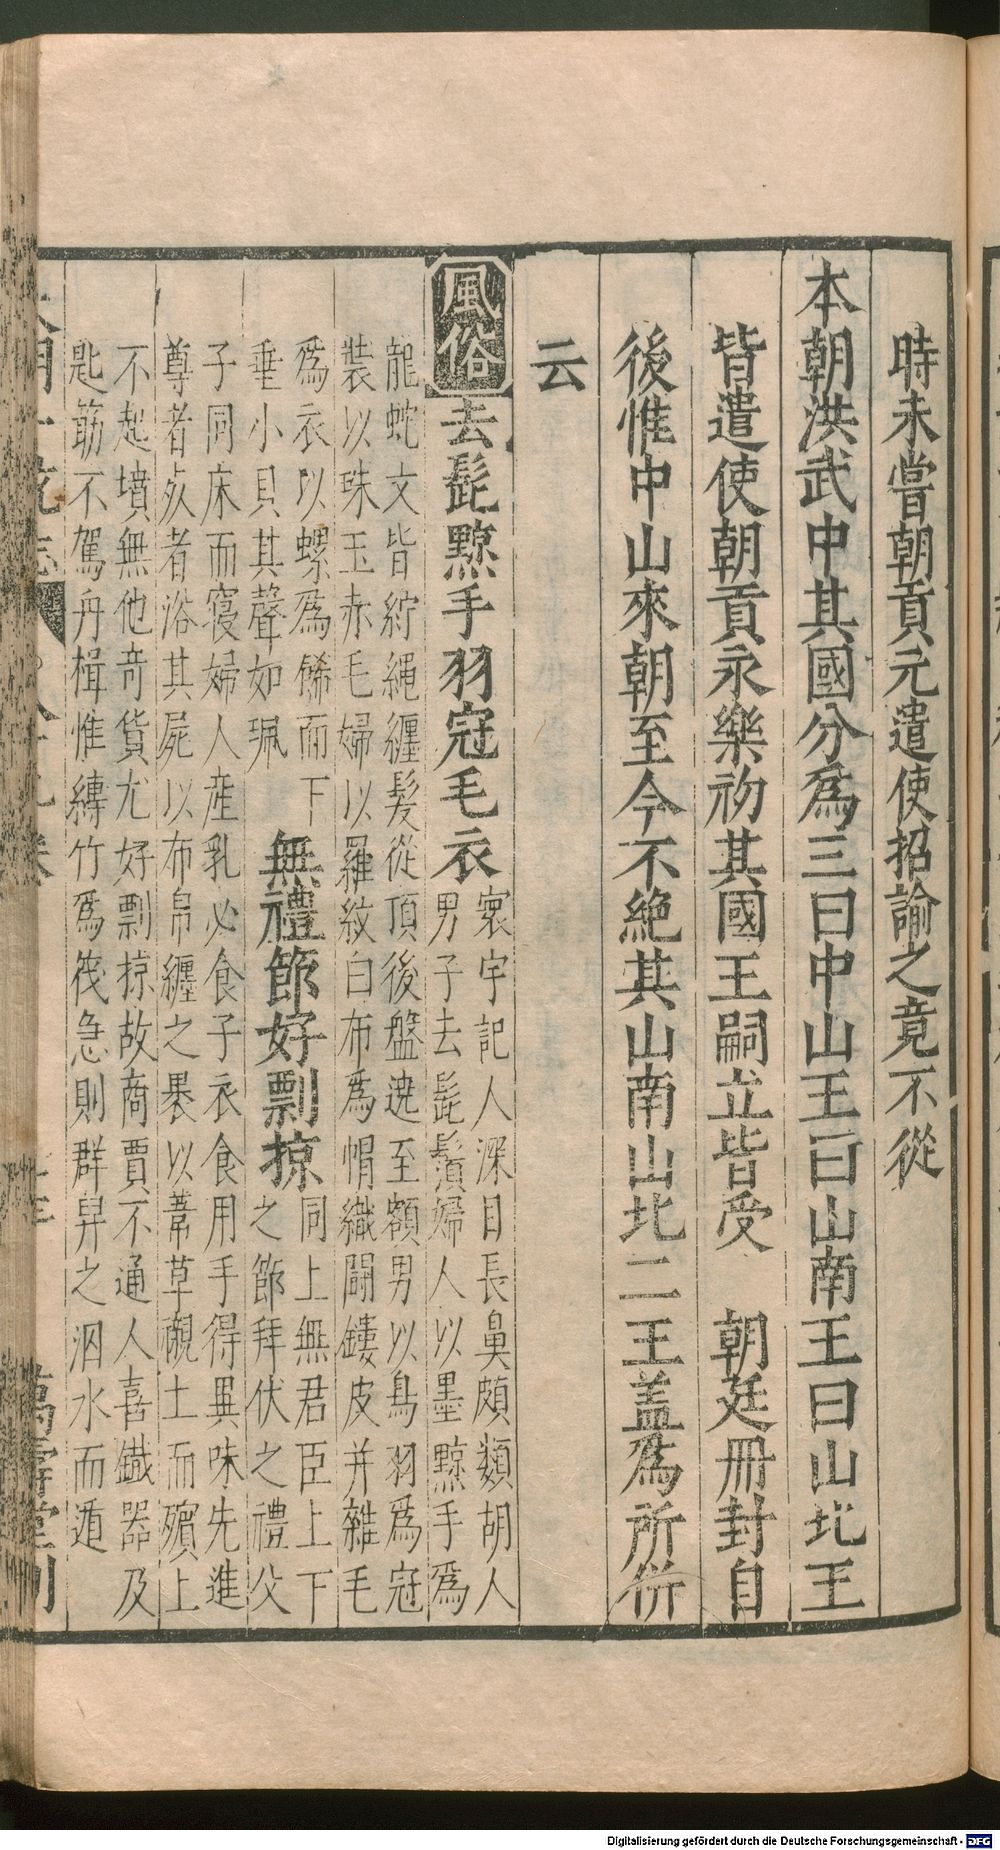 時未嘗朝貢元遣使招諭之竟不從
本朝洪武中其國分爲三曰中山王曰山南王曰山北王
皆遣使朝貢永樂初其國王嗣立皆受 朝廷冊封自
後惟中山來朝至今不絶其山南山北二王盖爲所併
云
風俗
去髭黥手羽冠毛衣
寰宇記人深目長鼻頗類胡人
男子去髭鬚婦人以墨黥手爲
龍蛇文皆紵繩纏髮從頂後盤遶至額男以鳥羽爲冠
裝以珠玉赤毛婦以羅紋白布爲帽織鬬鏤皮并雜毛
爲衣以螺爲餙而下
垂小貝其聲如珮
無禮節好剽掠
同上無君臣上下
之節拜伏之禮父
子同床而寢婦人産乳必食子衣食用手得異味先進
尊者死者浴其屍以布帛纏之褁以葦草襯土而殯上
不起墳無他竒貨尤好剽掠故商賈不通人喜鐵器及
匙筯不駕舟楫惟縳竹爲筏急則群舁之泅水而遁
萬壽堂刊
Digitalisierung gefördert durch die Deutsche Forschungsgemeinschaft - DFG